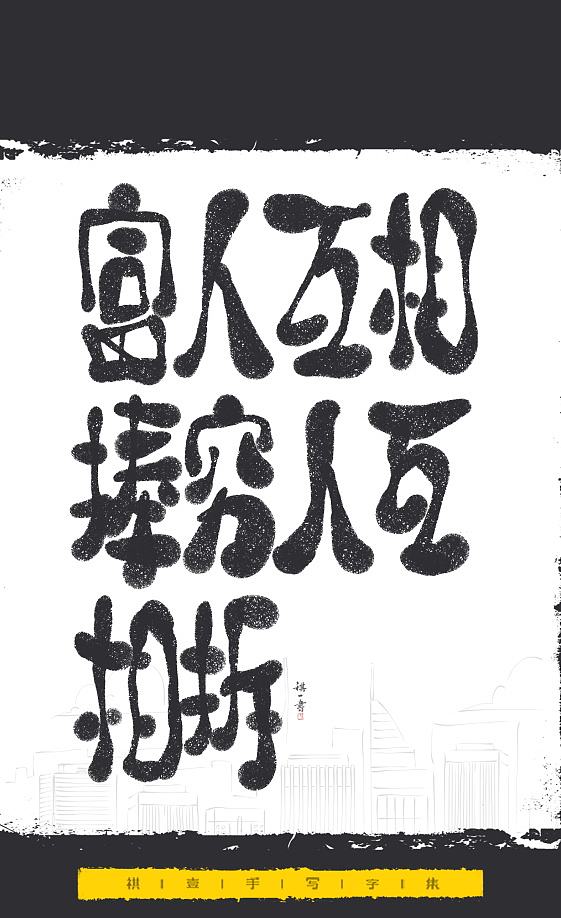 富人互相
捧穷人互
相拆
祺一壹
祺 | 壹 | 手 | 写 | 字 | 集